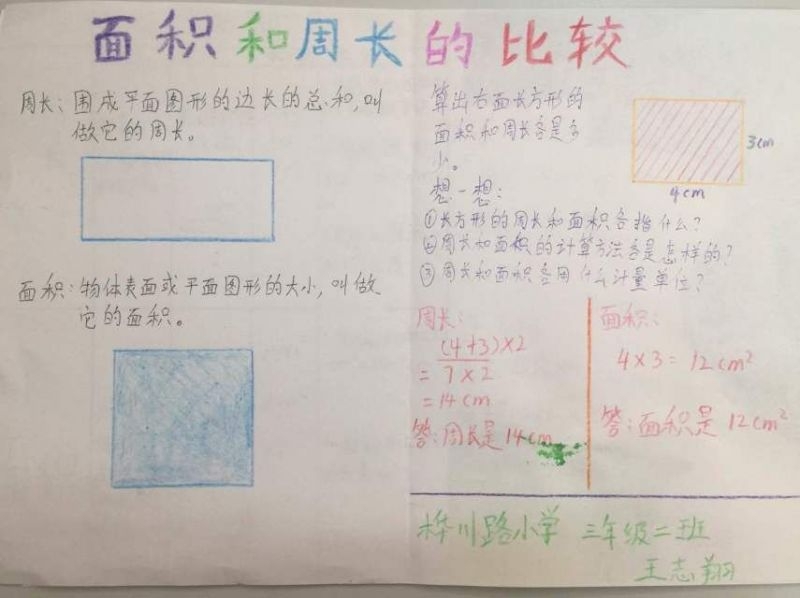 面积和周长的比较
周长：围成平面图形的边长的总和，叫
做它的周长。
面积：物体表面或平面图形的大小，叫做
它的面积。
算出右面长方形的
面积和周长各是多
小。
3cm
4cm
想一想：
①长方形的周长和面积各指什么？
②周长和面积的计算方法各是怎样的？
③周长和面积各用什么计量单位？
周长：
(4+3)×2
=7×2
=14cm
答：周长是14cm
面积：
4×3=12cm²
答：面积是12cm²
桦川路小学 三年级二班
王志翔